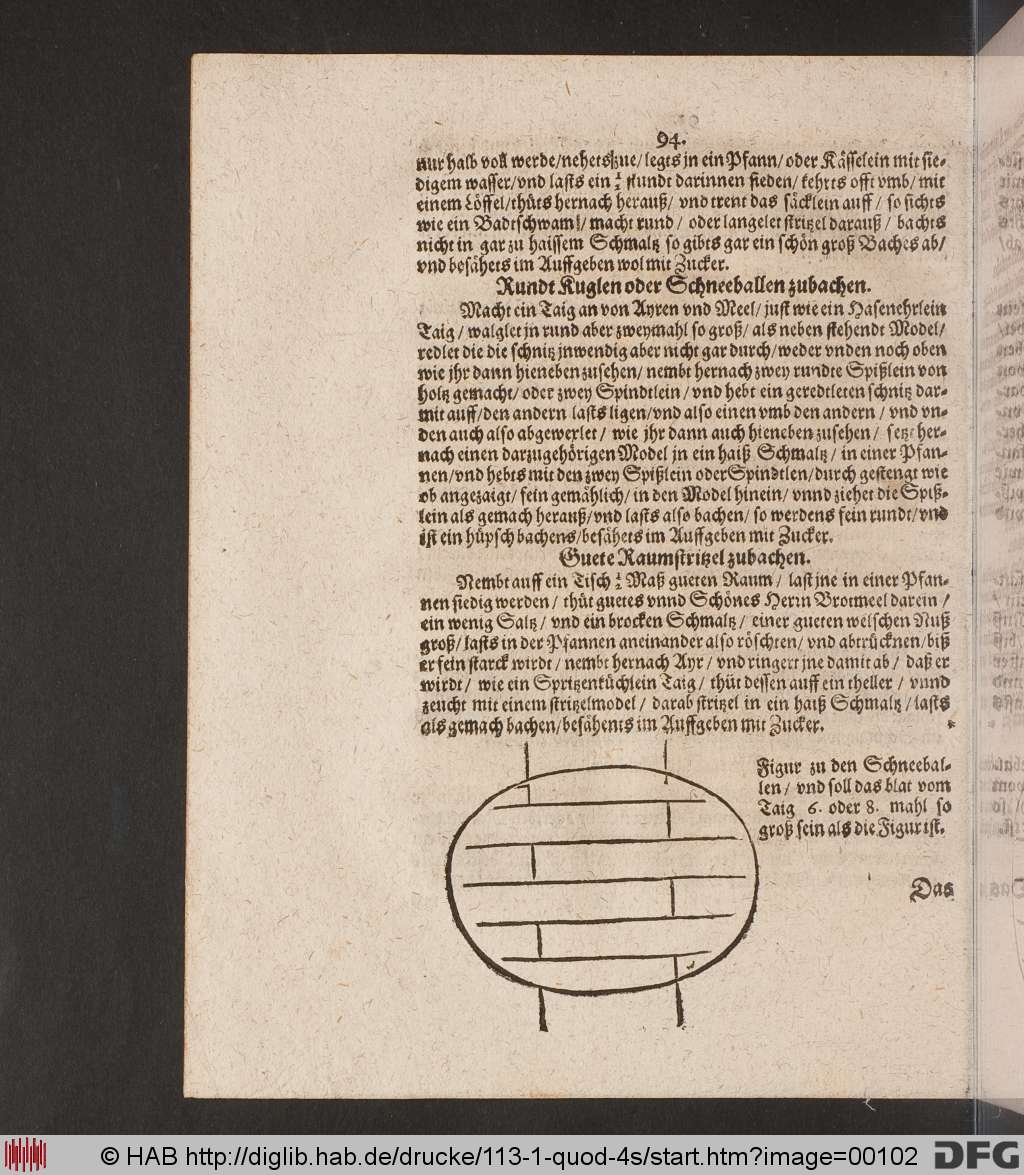 94.
nur halb voll werde/nehets zue/ legts jn ein Pfann/ oder Kässelein mit sie-
digem wasser/vnd lasts ein ½ stundt darinnen sieden/ kehrts offt vmb/ mit
einem Löffel/thüts hernach herauß/ vnd trent das säcklein auff / so sichts
wie ein Badtschwam̃/ macht rund / oder langelet stritzel darauß / bachts
nicht in gar zu haissem Schmaltz so gibts gar ein schön groß Baches ab/
vnd besähets im Auffgeben wol mit Zucker.
Rundt Kuglen oder Schneeballen zubachen.
Macht ein Taig an von Ayren vnd Meel/ just wie ein Hasenehrlein
Taig / walglet jn rund aber zweymahl so groß/ als neben stehendt Model/
redlet die die schnitz jnwendig aber nicht gar durch/weder vnden noch oben
wie jhr dann hieneben zusehen/ nembt hernach zwey rundte Spißlein von
holtz gemacht/ oder zwey Spindtlein / vnd hebt ein geredtleten schnitz dar-
mit auff/den andern lasts ligen/vnd also einen vmb den andern / vnd vn-
den auch also abgewexlet / wie jhr dann auch hieneben zusehen / setzt her-
nach einen darzugehörigen Model jn ein haiß Schmaltz / in einer Pfan-
nen/vnd hebts mit den zwey Spißlein oder Spindtlen/durch gestengt wie
ob angezaigt/ fein gemählich/ in den Model hinein/ vnnd ziehet die Spiß-
lein als gemach herauß/vnd lasts also bachen/ so werdens fein rundt/vnd
ist ein hüpsch bachens/besähets im Auffgeben mit Zucker.
Guete Raumstritzel zubachen.
Nembt auff ein Tisch ½ Maß gueten Raum / last jne in einer Pfan-
nen siedig werden / thüt guetes vnnd Schönes Herrn Brotmeel darein /
ein wenig Saltz / vnd ein brocken Schmaltz / einer gueten welschen Nuß
groß/ lasts in der Pfannen aneinander also röschten/ vnd abtrücknen/biß
er fein starck wirdt / nembt hernach Ayr / vnd ringert jne damit ab / daß er
wirdt / wie ein Spritzenküchlein Taig / thüt dessen auff ein theller / vnnd
zeucht mit einem stritzelmodel / darab stritzel in ein haiß Schmaltz / lasts
als gemach bachen/besähents im Auffgeben mit Zucker.
Figur zu den Schneebal-
len / vnd soll das blat vom
Taig 6. oder 8. mahl so
groß sein als die Figur ist.
Das
© HAB http://diglib.hab.de/drucke/113-1-quod-4s/start.htm?image=00102
DFG